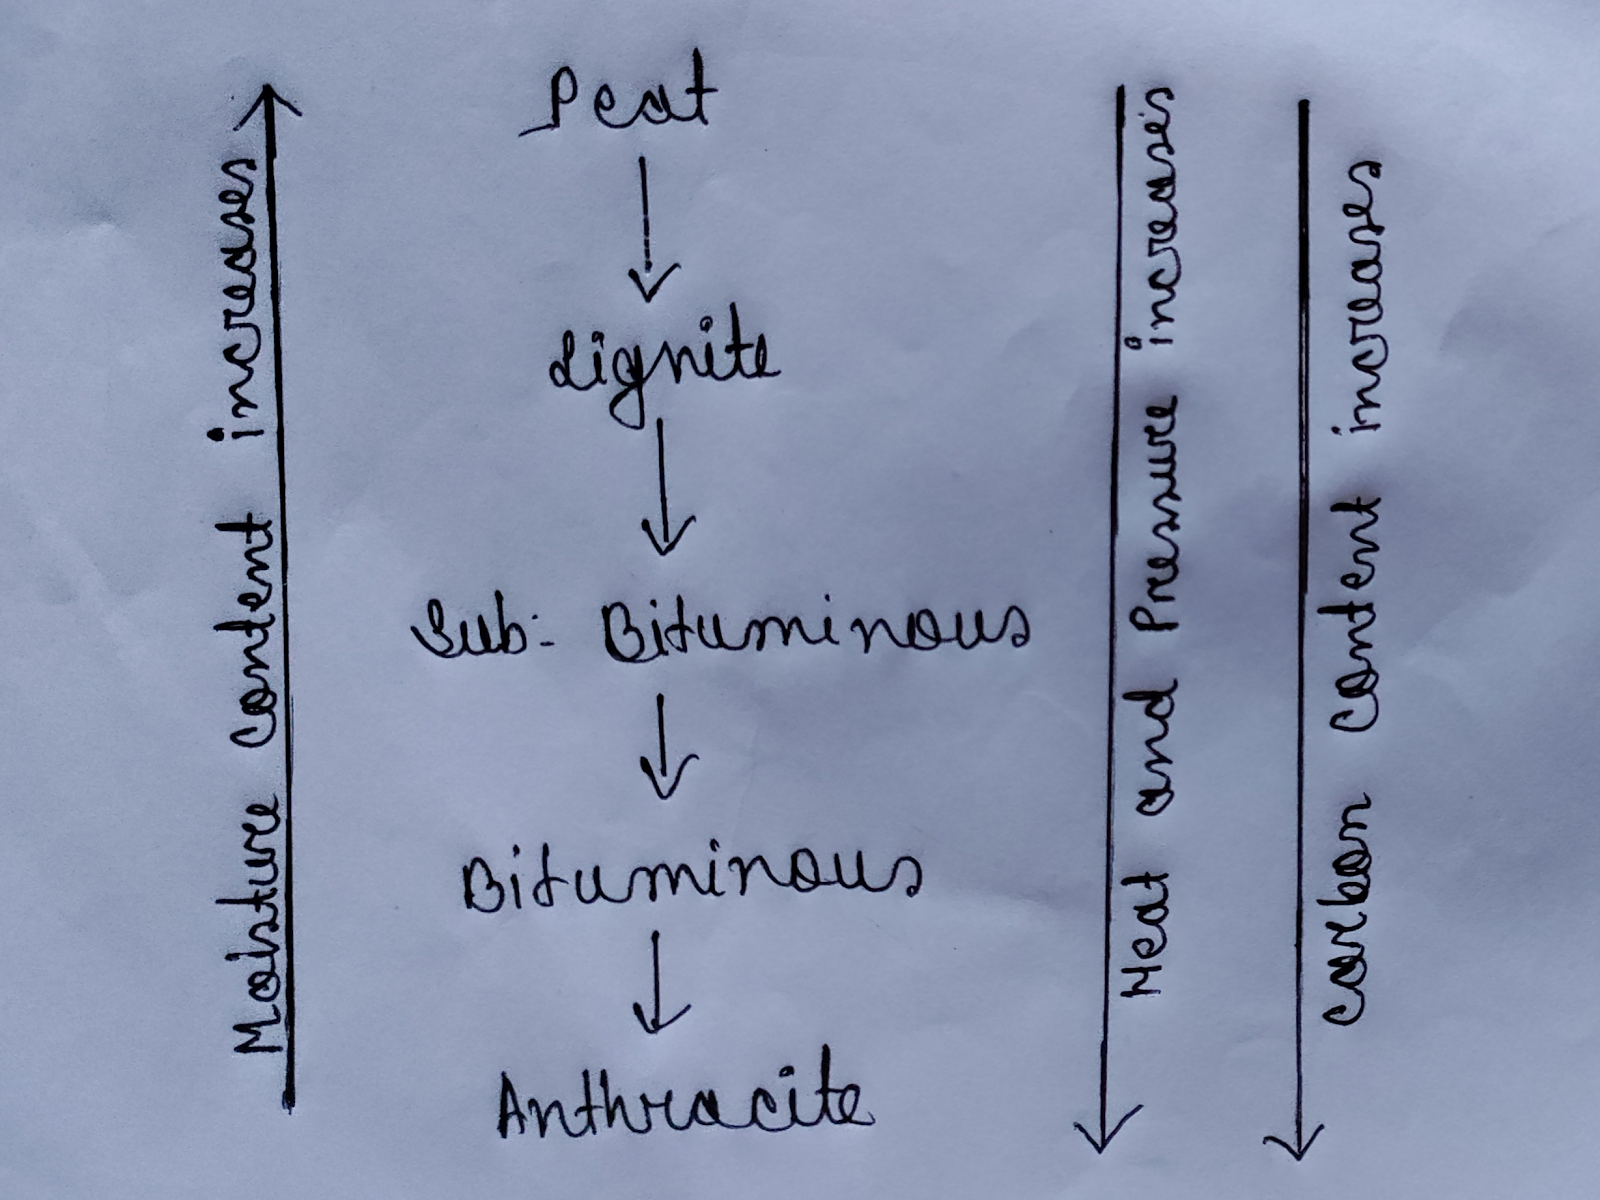 Peat
Lignite
Sub-Bituminous
Bituminous
Anthracite
Moisture content increases
Heat and Pressure increases
Carbon content increases